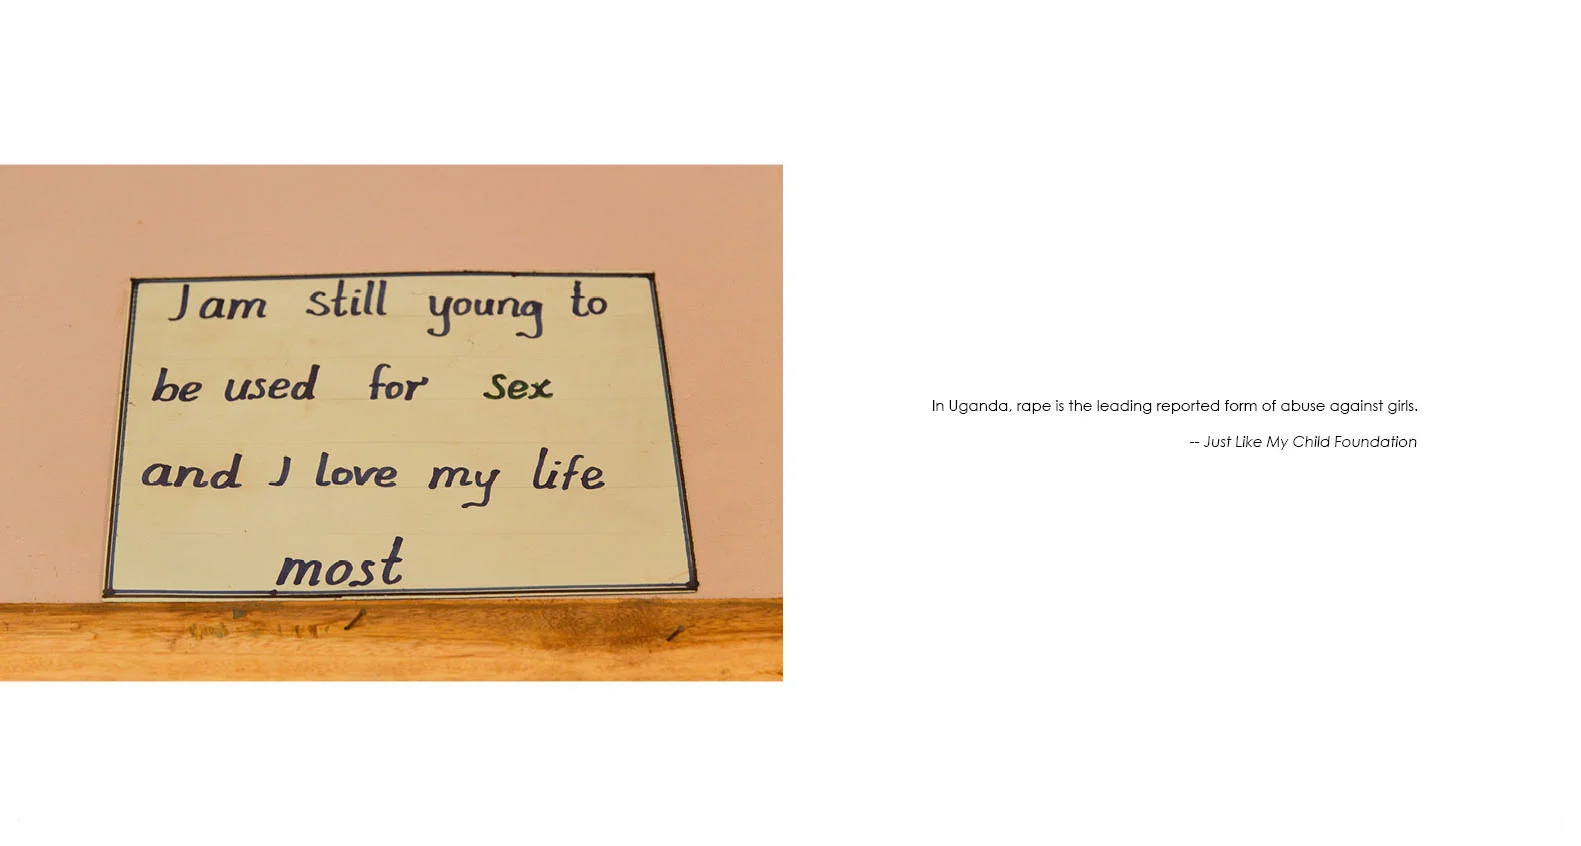 I am still young to
be used for sex
and I love my life
most
In Uganda, rape is the leading reported form of abuse against girls.
-- Just Like My Child Foundation